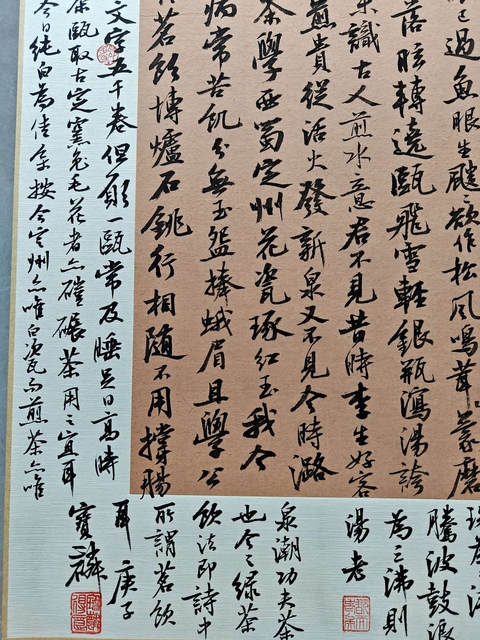 已過魚眼生颼〻欲作松風鳴茸蒙磨
落眩轉遶甌飛雪輕銀瓶瀉湯誇
識古人煎水意君不見昔時李生好客
煎貴從活火發新泉又不見今時潞
茶學西蜀定州花瓷琢紅玉我今
病常苦飢分無玉盌捧蛾眉且學公
茗飲塼爐石銚行相隨不用撐腸
文字五千卷但願一甌常及睡足日高時
茶甌取古定窯兔毛花者亦碾茶用之宜耳
今日純白為佳余按今定州亦唯白瓷而煎茶亦唯
騰波鼓浪
為三沸則
湯老
泉潮功夫茶
也今之綠茶
飲法即詩中
所謂茗飲
耳庚子
寶麟